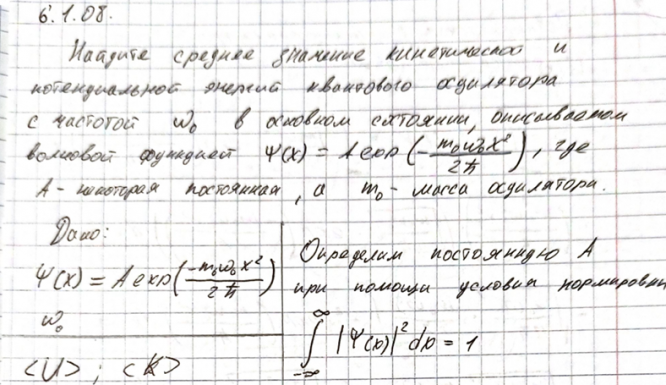 6.1.08.
Найдите среднее значение кинетической и
потенциальной энергий квантового осцилятора
с частотой ω₀ в основном состоянии, описываемом
волновой функцией Ψ(x) = A exp(-m₀ω₀x²/2ħ), где
A - некоторая постоянная, а m₀ - масса осцилятора.
Дано:
Ψ(x) = A exp(-m₀ω₀x²/2ħ)
ω₀
<U> ; <K>
Определим постоянную A
при помощи условия нормировки
∫_{-∞}^{∞} |Ψ(x)|² dx = 1